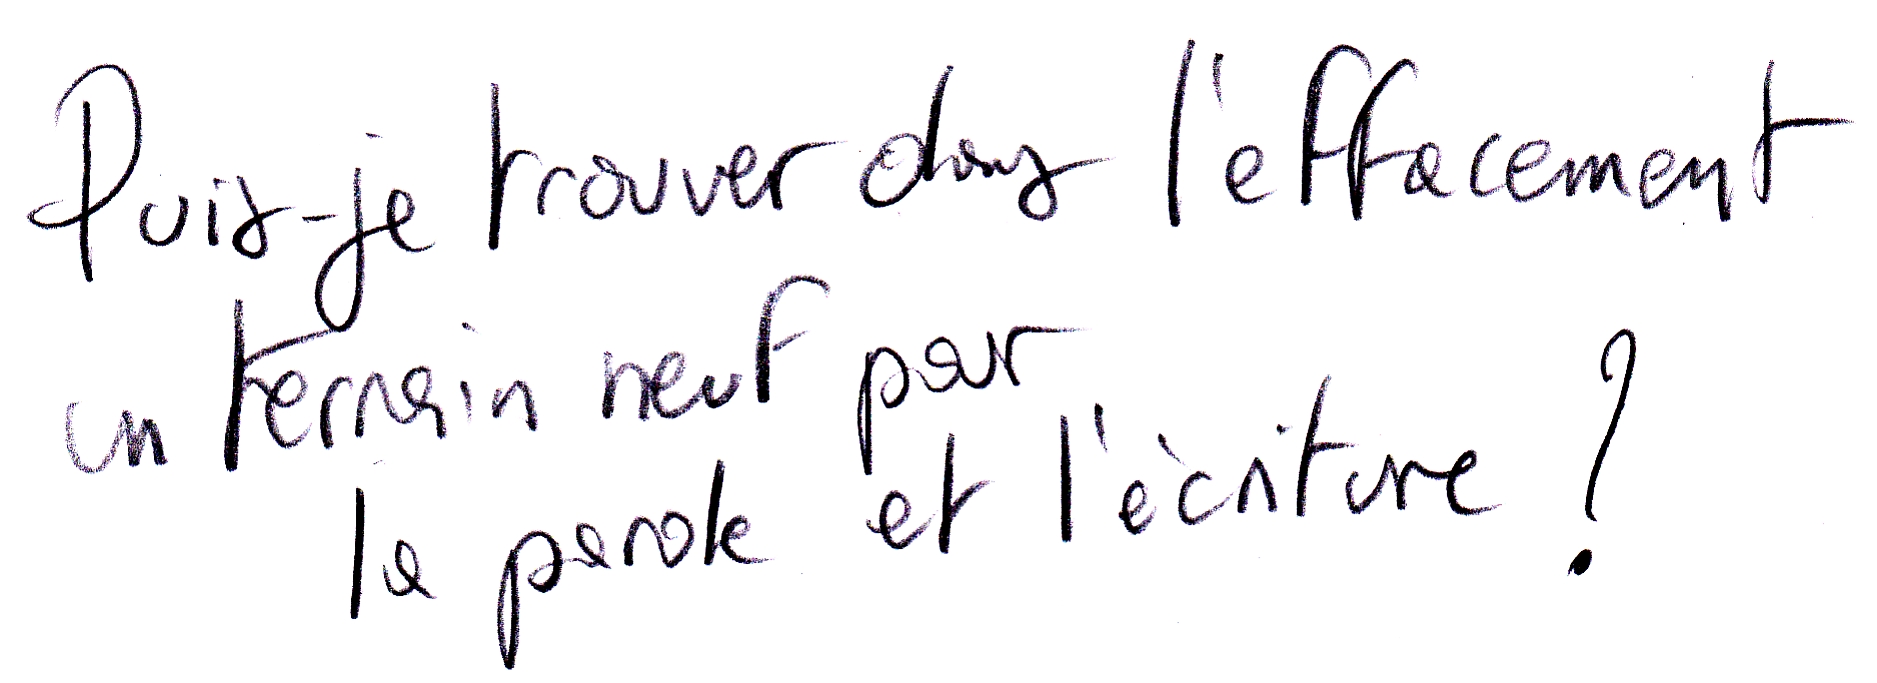 Puis-je trouver dans l'effacement
un terrain neuf pour
la parole et l'écriture ?